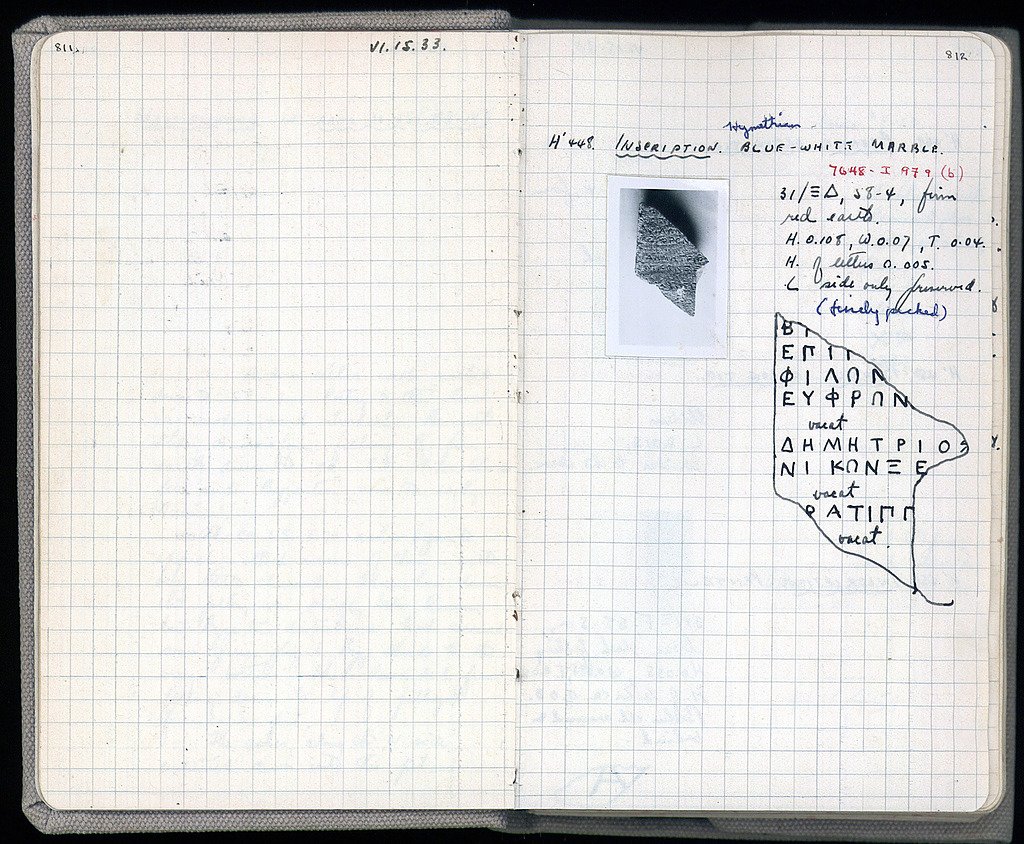 811
VI.15.33.
812
Hymettian
H'448. INSCRIPTION. BLUE-WHITE MARBLE.
7648-I 979 (b)
31/ΞΔ, 58-4, firm
red earth.
H. 0.108, W. 0.07, T. 0.04.
H. of letters 0.005.
L side only preserved.
(finely picked)
ΒΙ
ΕΠΙΓ
ΦΙΛΩΝ
ΕΥΦΡΩΝ
vacat
ΔΗΜΗΤΡΙΟΣ
ΝΙΚΩΝΞΕ
vacat
ΡΑΤΙΠΠ
vacat.